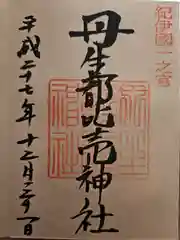 紀伊國一之宮
丹生都比売神社
平成二十七年十二月二十一日